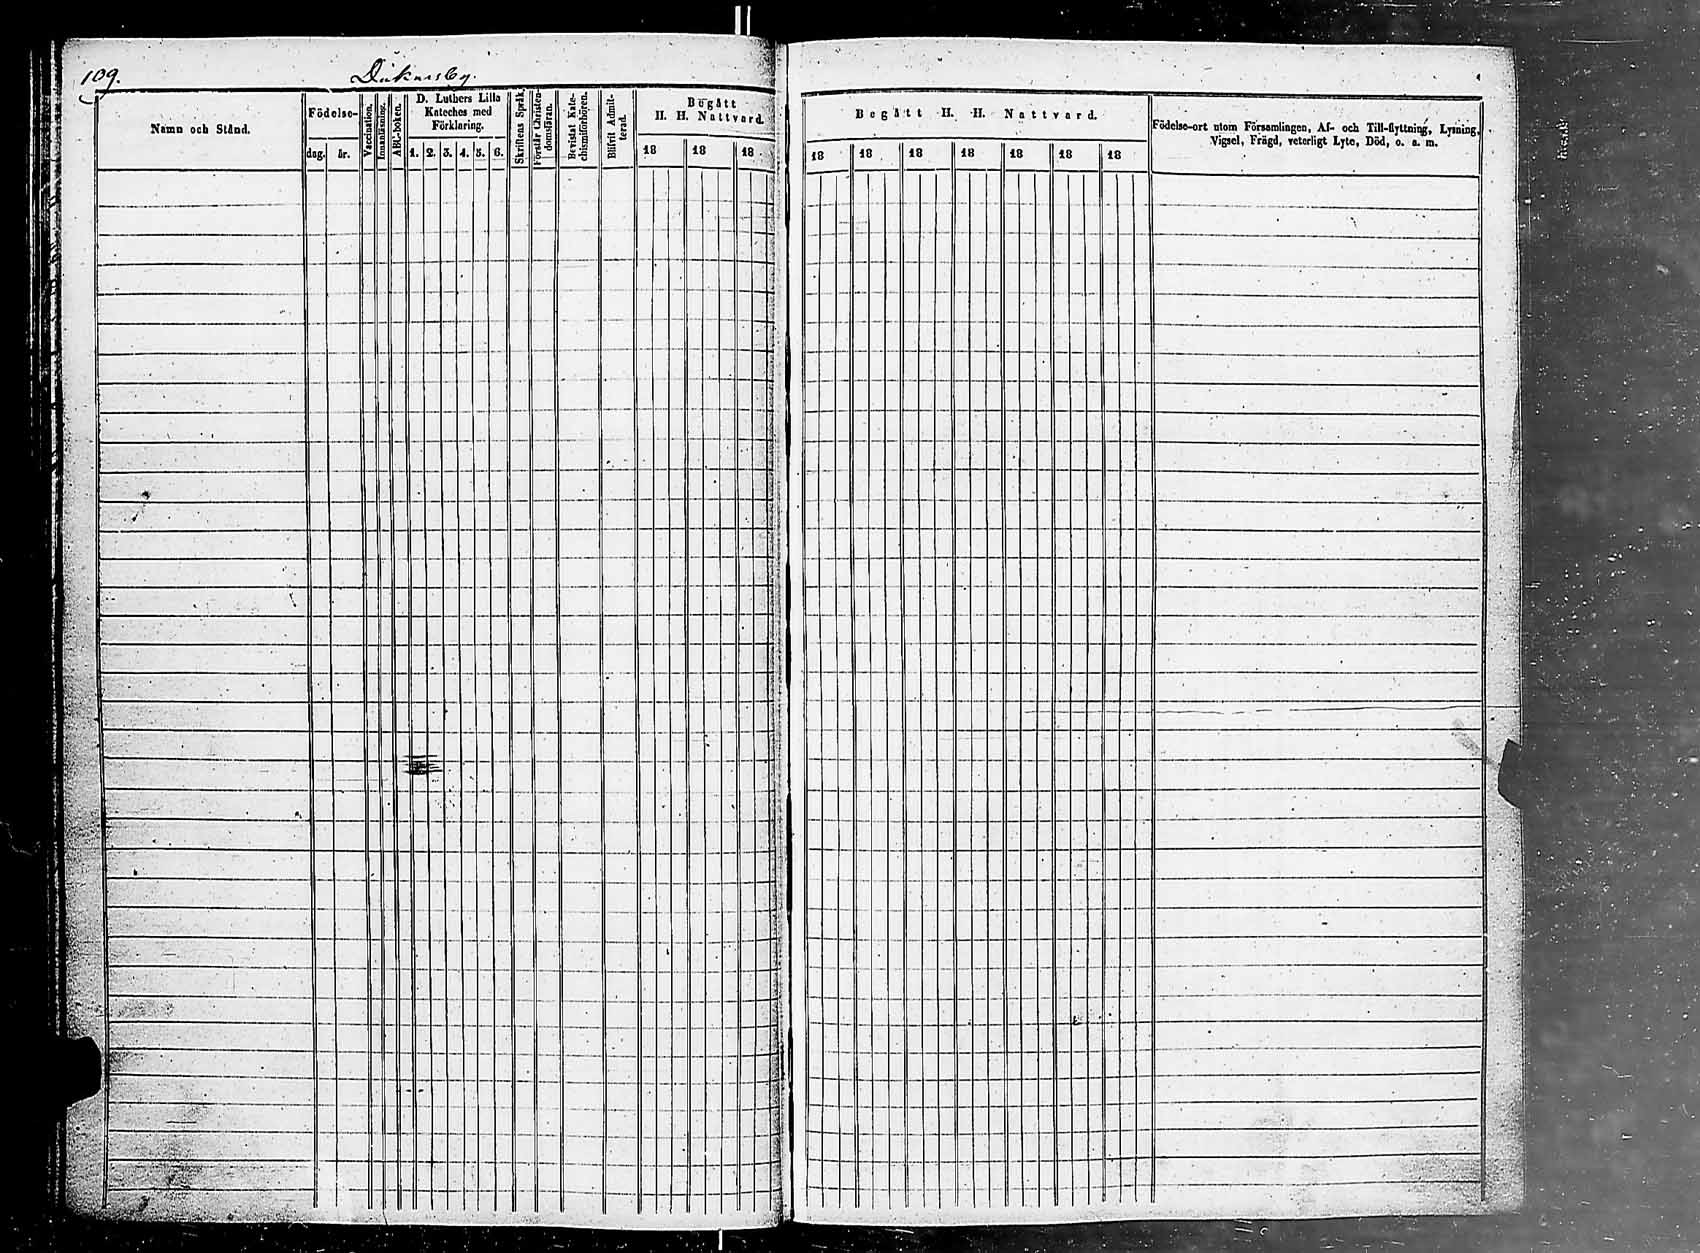 109. Däkarsby.
Namn och Stånd.
Födelse-
dag. år.
Vaccination.
Innanläsning.
ABC-boken.
D. Luthers Lilla
Kateches med
Förklaring.
1. 2. 3. 4. 5. 6.
Skriftens Språk.
Förstår Christen-
domsläran.
Bevistat Kate-
chismiförhören.
Blifvit Admit-
terad.
Begått
H. H. Nattvard.
18 18 18
Begått H. H. Nattvard.
18 18 18 18 18 18 18
Födelse-ort utom Församlingen, Af- och Till-flyttning, Lysning,
Vigsel, Frägd, veterligt Lyte, Död, o. s. m.